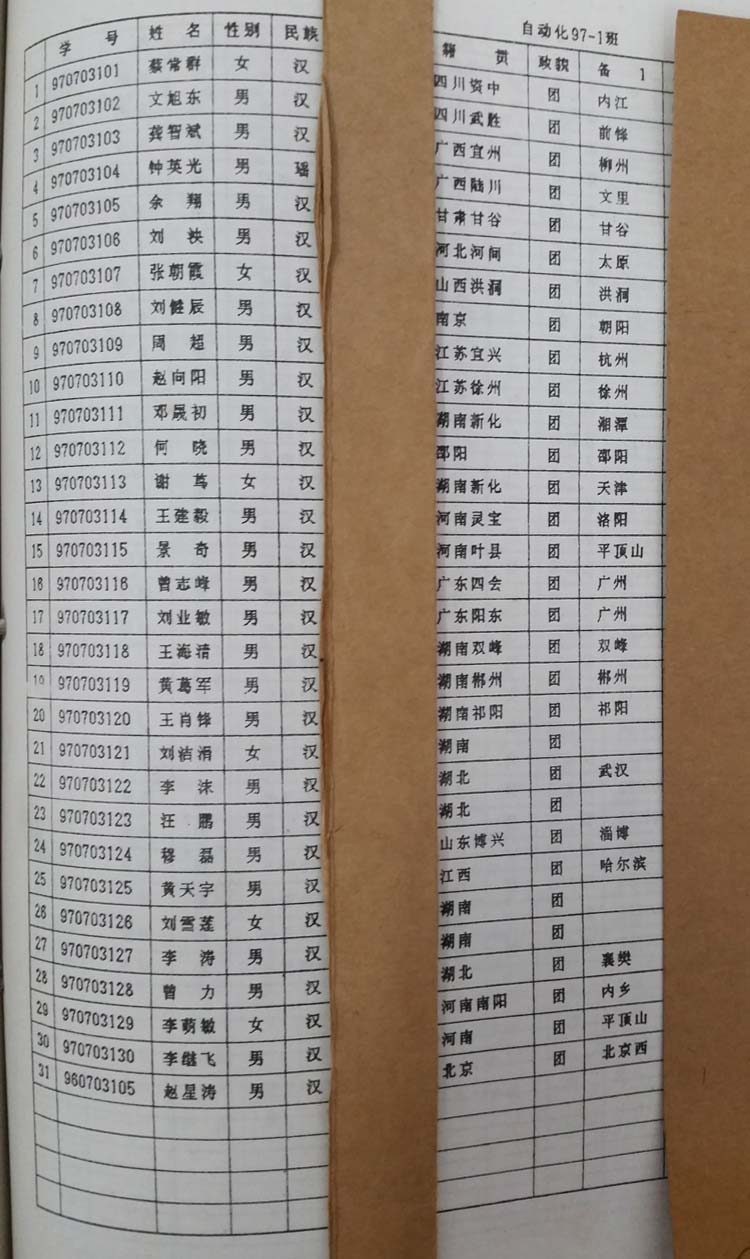 自动化97-1班
学号 姓名 性别 民族 籍贯 政貌 备1
1 970703101 蔡常群 女 汉 四川资中 团 内江
2 970703102 文旭东 男 汉 四川武胜 团 前锋
3 970703103 龚智斌 男 汉 广西宜州 团 柳州
4 970703104 钟英光 男 瑶 广西陆川 团 文里
5 970703105 余翔 男 汉 甘肃甘谷 团 甘谷
6 970703106 刘泱 男 汉 河北河间 团 太原
7 970703107 张朝霞 女 汉 山西洪洞 团 洪洞
8 970703108 刘健辰 男 汉 南京 团 朝阳
9 970703109 周超 男 汉 江苏宜兴 团 杭州
10 970703110 赵向阳 男 汉 江苏徐州 团 徐州
11 970703111 邓晟初 男 汉 湖南新化 团 湘潭
12 970703112 何晓 男 汉 邵阳 团 邵阳
13 970703113 谢茑 女 汉 湖南新化 团 天津
14 970703114 王建毅 男 汉 河南灵宝 团 洛阳
15 970703115 景奇 男 汉 河南叶县 团 平顶山
16 970703116 曾志峰 男 汉 广东四会 团 广州
17 970703117 刘业敏 男 汉 广东阳东 团 广州
18 970703118 王海清 男 汉 湖南双峰 团 双峰
19 970703119 黄葛军 男 汉 湖南郴州 团 郴州
20 970703120 王肖锋 男 汉 湖南祁阳 团 祁阳
21 970703121 刘洁涓 女 汉 湖南 团
22 970703122 李沫 男 汉 湖北 团 武汉
23 970703123 汪鹏 男 汉 湖北 团
24 970703124 穆磊 男 汉 山东博兴 团 淄博
25 970703125 黄天宇 男 汉 江西 团 哈尔滨
26 970703126 刘雪莲 女 汉 湖南 团
27 970703127 李涛 男 汉 湖南 团
28 970703128 曾力 男 汉 湖北 团 襄樊
29 970703129 李萌敏 女 汉 河南南阳 团 内乡
30 970703130 李继飞 男 汉 河南 团 平顶山
31 960703105 赵星涛 男 汉 北京 团 北京西